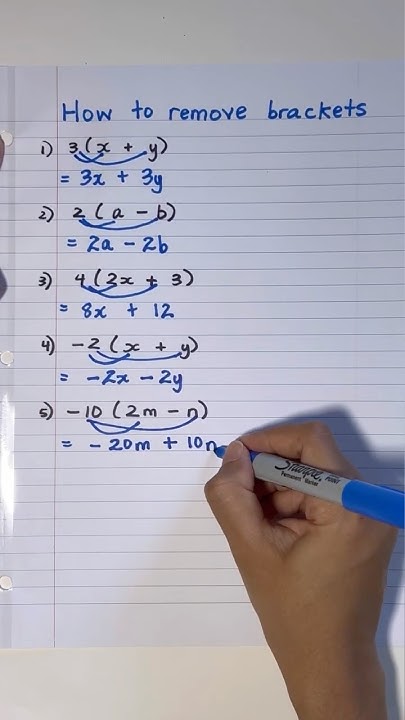 How to remove brackets
1) 3(x + y)
= 3x + 3y
2) 2(a - b)
= 2a - 2b
3) 4(2x + 3)
= 8x + 12
4) -2(x + y)
= -2x - 2y
5) -10(2m - n)
= -20m + 10n
Sharpie
Permanent Marker